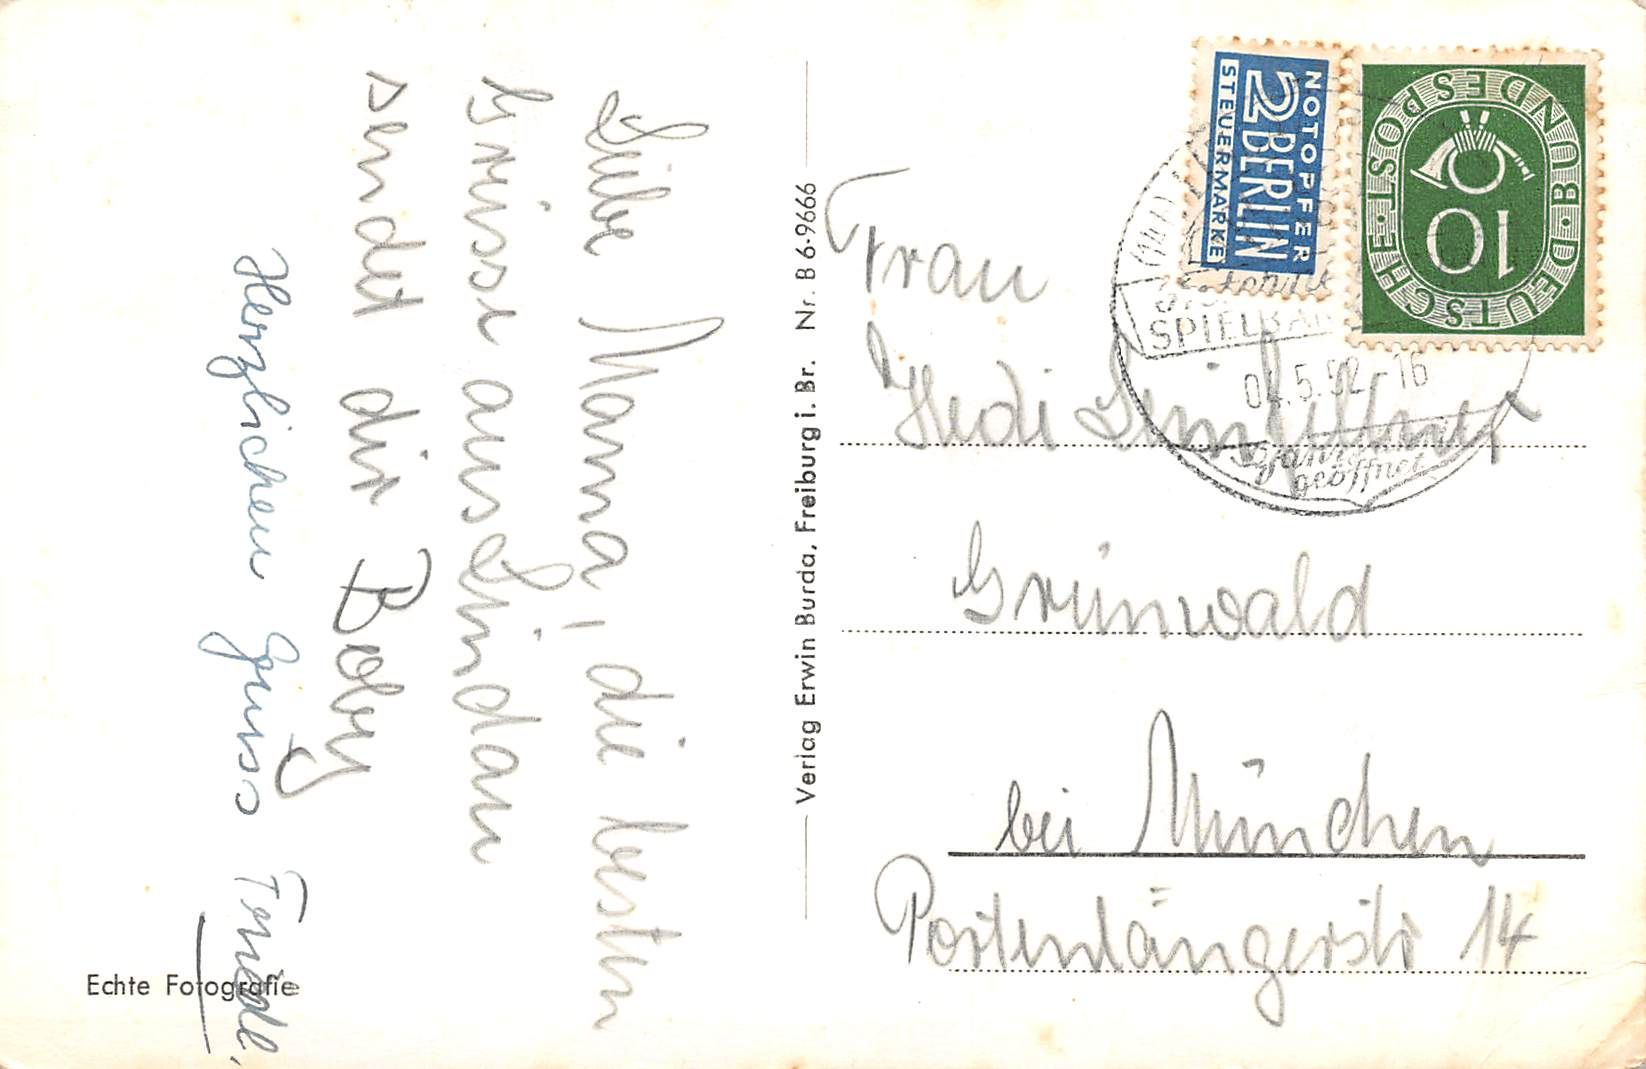 Liebe Mama, die besten
Grüsse aus Lindau
sendet dir Boby
Herzlichen Gruss Friedl.
Echte Fotografie
Verlag Erwin Burda, Freiburg i. Br. Nr. B 6-9666
NOTOPFER
2 BERLIN
STEUERMARKE
DEUTSCHE BUNDESPOST
10
SPIELBAN
5.52-16
geöffnet
Frau
Hedi
Grünwald
bei München
Portenlängerstr 14